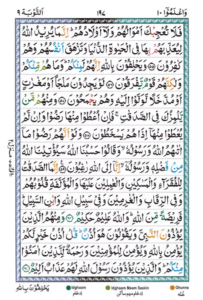 وَاعْلَمُوْٓا ١٠ ١٩٧ اَلتَّوْبَة ٩
فَلَا تُعْجِبْكَ اَمْوَالُهُمْ وَلَآ اَوْلَادُهُمْ ؕ اِنَّمَا يُرِيْدُ اللّٰهُ
لِيُعَذِّبَهُمْ بِهَا فِى الْحَيٰوةِ الدُّنْيَا وَتَزْهَقَ اَنْفُسُهُمْ وَهُمْ
كٰفِرُوْنَ ۝ وَيَحْلِفُوْنَ بِاللّٰهِ اِنَّهُمْ لَمِنْكُمْ ؕ وَمَا هُمْ مِّنْكُمْ
وَلٰكِنَّهُمْ قَوْمٌ يَّفْرَقُوْنَ ۝ لَوْ يَجِدُوْنَ مَلْجَاً اَوْ مَغٰرٰتٍ
اَوْ مُدَّخَلًا لَّوَلَّوْا اِلَيْهِ وَهُمْ يَجْمَحُوْنَ ۝ وَمِنْهُمْ مَّنْ
يَّلْمِزُكَ فِى الصَّدَقٰتِ ۚ فَاِنْ اُعْطُوْا مِنْهَا رَضُوْا وَاِنْ لَّمْ
يُعْطَوْا مِنْهَآ اِذَا هُمْ يَسْخَطُوْنَ ۝ وَلَوْ اَنَّهُمْ رَضُوْا مَآ
اٰتٰىهُمُ اللّٰهُ وَرَسُوْلُهٗ ۙ وَقَالُوْا حَسْبُنَا اللّٰهُ سَيُؤْتِيْنَا اللّٰهُ
مِنْ فَضْلِهٖ وَرَسُوْلُهٗٓ ۙ اِنَّآ اِلَى اللّٰهِ رٰغِبُوْنَ ۝ اِنَّمَا الصَّدَقٰتُ
لِلْفُقَرَآءِ وَالْمَسٰكِيْنِ وَالْعٰمِلِيْنَ عَلَيْهَا وَالْمُؤَلَّفَةِ قُلُوْبُهُمْ
وَفِى الرِّقَابِ وَالْغٰرِمِيْنَ وَفِىْ سَبِيْلِ اللّٰهِ وَابْنِ السَّبِيْلِ ؕ
فَرِيْضَةً مِّنَ اللّٰهِ ؕ وَاللّٰهُ عَلِيْمٌ حَكِيْمٌ ۝ وَمِنْهُمُ الَّذِيْنَ
يُؤْذُوْنَ النَّبِىَّ وَيَقُوْلُوْنَ هُوَ اُذُنٌ ؕ قُلْ اُذُنُ خَيْرٍ لَّكُمْ
يُؤْمِنُ بِاللّٰهِ وَيُؤْمِنُ لِلْمُؤْمِنِيْنَ وَرَحْمَةٌ لِّلَّذِيْنَ اٰمَنُوْا
مِنْكُمْ ؕ وَالَّذِيْنَ يُؤْذُوْنَ رَسُوْلَ اللّٰهِ لَهُمْ عَذَابٌ اَلِيْمٌ ۝
يَحْلِفُوْنَ بِاللّٰهِ